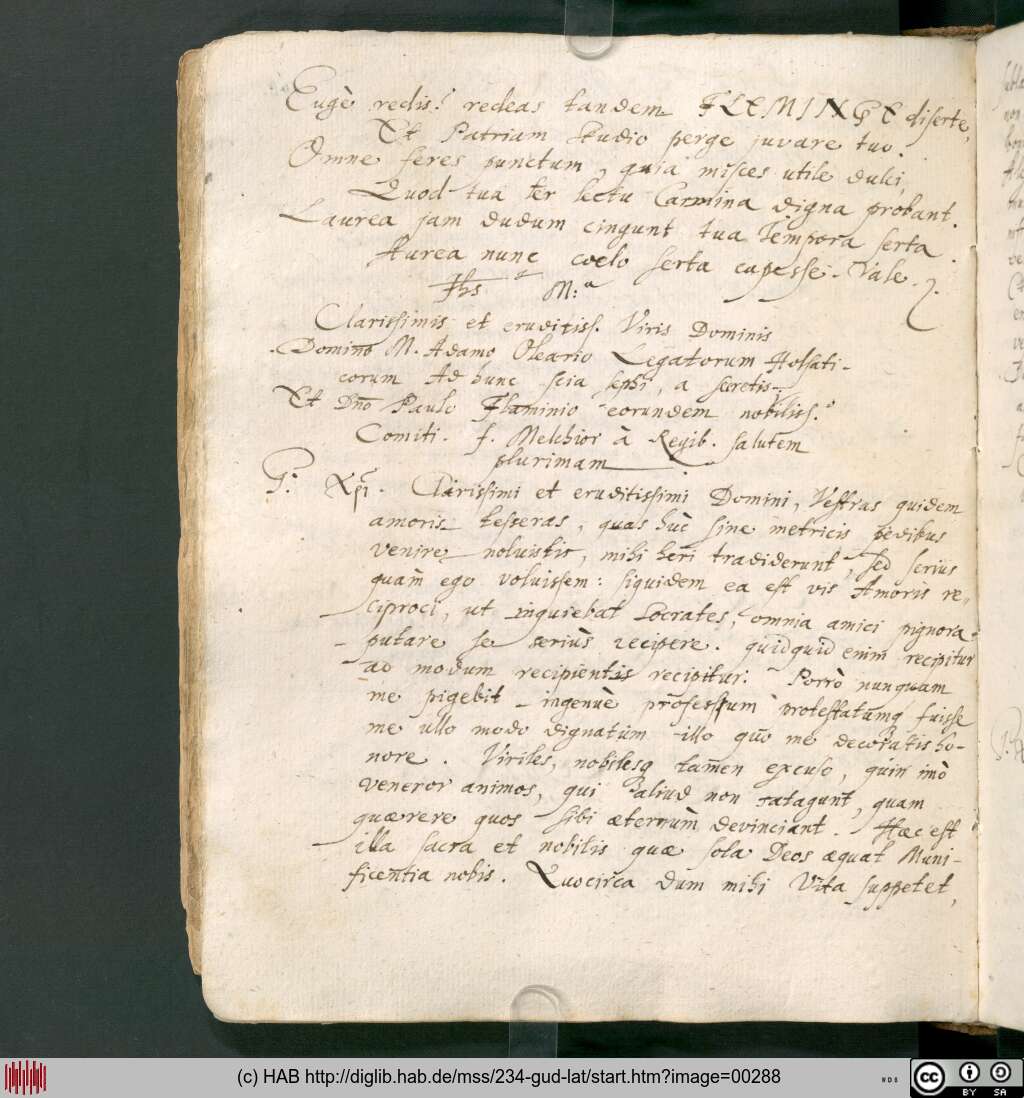 Eugè redis! redeas tandem FLEMINGE diserte,
Et Patriam studio perge juvare tuo.
Omne feres punctum, quia misces utile dulci,
Quod tua ter lectu Carmina digna probant.
Laurea jam dudum cingunt tua Tempora serta.
Aurea nunc coelo serta capesse. Vale.
Jhs M:a
Clarissimis et eruditiss. Viris Dominis
Domino M. Adamo Oleario Legatorum Holsati-
corum Ad hunc scia sephi, a secretis.
Et Dno Paulo Flaminio eorundem nobiliss.
Comiti. f. Melchior à Regib. salutem
plurimam
P: Xpi. Clarissimi et eruditissimi Domini, Vestras quidem
amoris tesseras, quas huc sine metricis pedibus
venire noluistis, mihi heri tradiderunt, sed serius
quam ego voluissem: siquidem ea est vis Amoris re-
ciproci, ut inquiebat Socrates, omnia amici pignora
putare se seriùs recipere. quidquid enim recipitur
ad modum recipientis recipitur. Porrò nunquam
me pigebit ingenuè professum protestatumq fuisse
me ullo modo dignatum illo quo me decoratis ho-
nore. Viriles, nobilesq tamen excuso, quin imò
veneror animos, qui aliud non satagunt, quam
quærere quos sibi æternùm devinciant. Hæc est
illa sacra et nobilis quæ sola Deos æquat Muni-
ficentia nobis. Quocirca dum mihi Vita suppetet,
(c) HAB http://diglib.hab.de/mss/234-gud-lat/start.htm?image=00288
cc BY SA